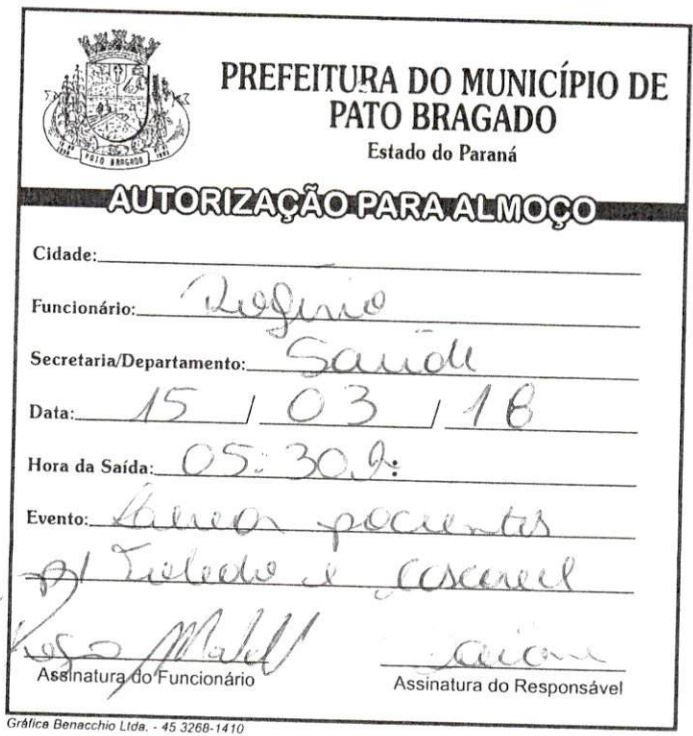 PREFEITURA DO MUNICÍPIO DE
PATO BRAGADO
Estado do Paraná
PATO BRAGADO
AUTORIZAÇÃO PARA ALMOÇO
Cidade:
Funcionário: Rogério
Secretaria/Departamento: Saúde
Data: 15 / 03 / 18
Hora da Saída: 05:30
Evento: pacientes
p/ Toledo e Cascavel
Assinatura do Funcionário
Assinatura do Responsável
Gráfica Benacchio Ltda. - 45 3268-1410